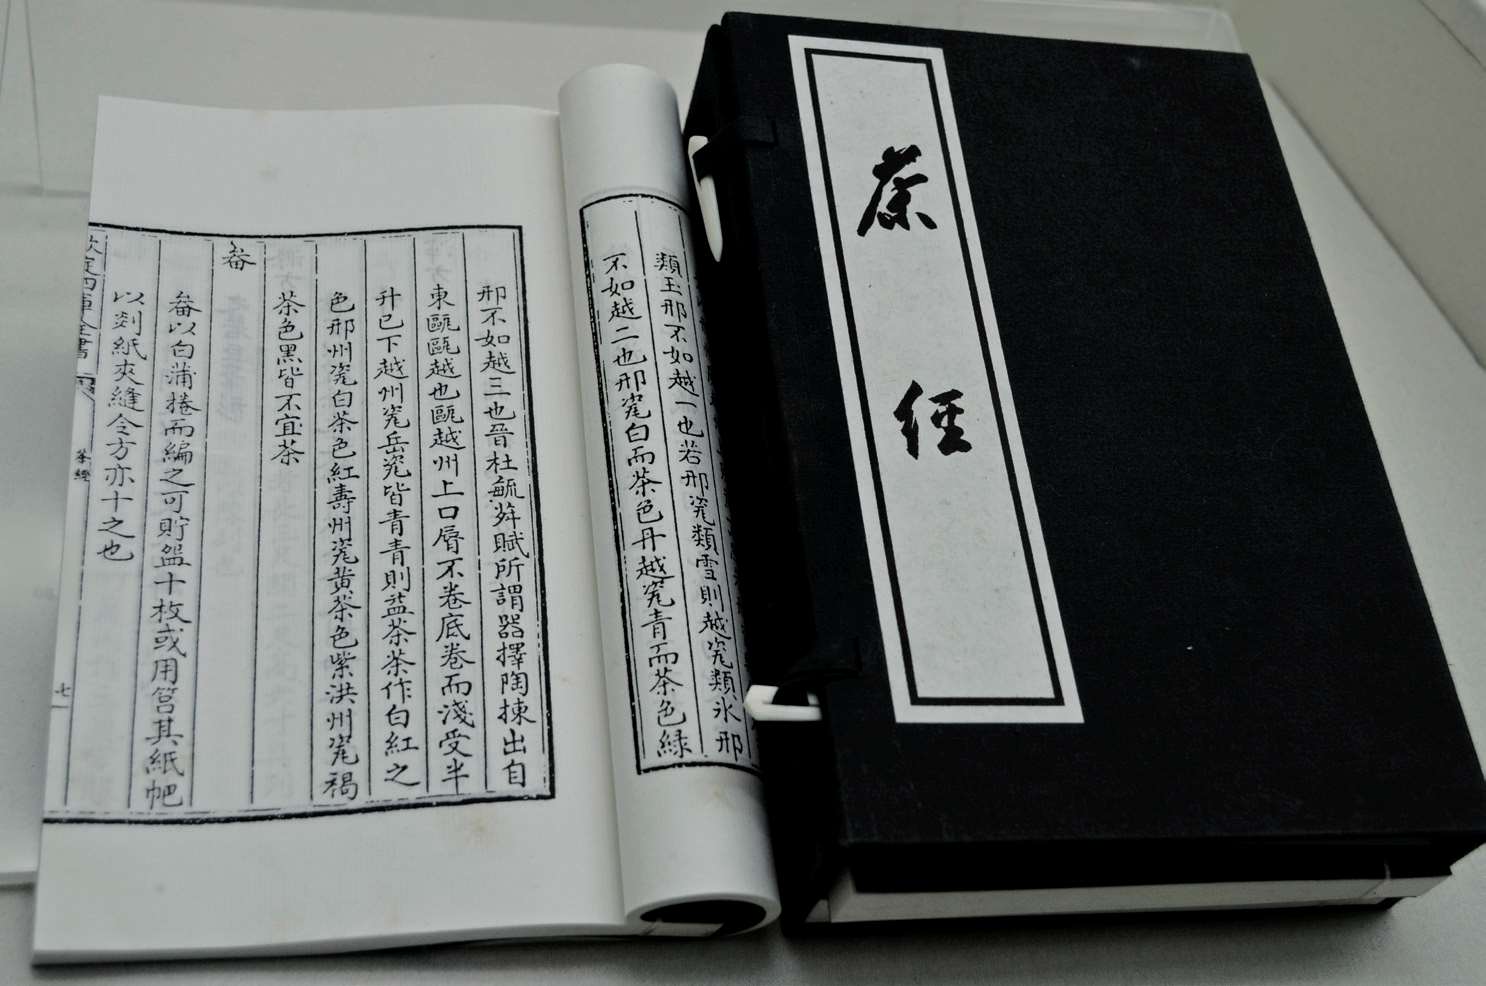 類玉邢不如越一也若邢瓷類雪則越瓷類氷邢
不如越二也邢瓷白而茶色丹越瓷青而茶色緑
邢不如越三也晉杜毓荈賦所謂器擇陶揀出自
東甌甌越也甌越州上口脣不卷底卷而淺受半
升已下越州瓷岳瓷皆青青則益茶茶作白紅之
色邢州瓷白茶色紅壽州瓷黄茶色紫洪州瓷褐
茶色黑皆不宜茶
畚
畚以白蒲捲而編之可貯盌十枚或用筥其紙帊
以剡紙夾縫令方亦十之也
欽定四庫全書
茶經
七
茶經